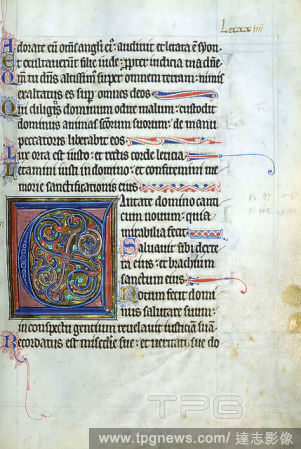 Lxxxiiii
Adorate eum oms angli ei᷒ audiuit et letata e syon
Et exultauerunt filie iude ppter iudicia tua dne
Qm tu dns altissim᷒ super omnem terram nimis
exaltatus es sup omnes deos
Qui diligitis dominum odite malum custodit
dominus animas scorum suorum de manu
peccatoris liberabit eos
Lux orta est iusto et rectis corde leticia
Letamini iusti in domino et confitemini me
morie sanctificationis eius
Cantate domino canti
cum nouum quia
mirabilia fecit
Saluauit sibi dexte
ra eius et brachium
sanctum eius
Notum fecit domi
nus salutare suum
in conspectu gentium reuelauit iusticiam suam
Recordatus est misericdie sue et ueritati sue do
TPG
www.tpgnews.com/達志影像